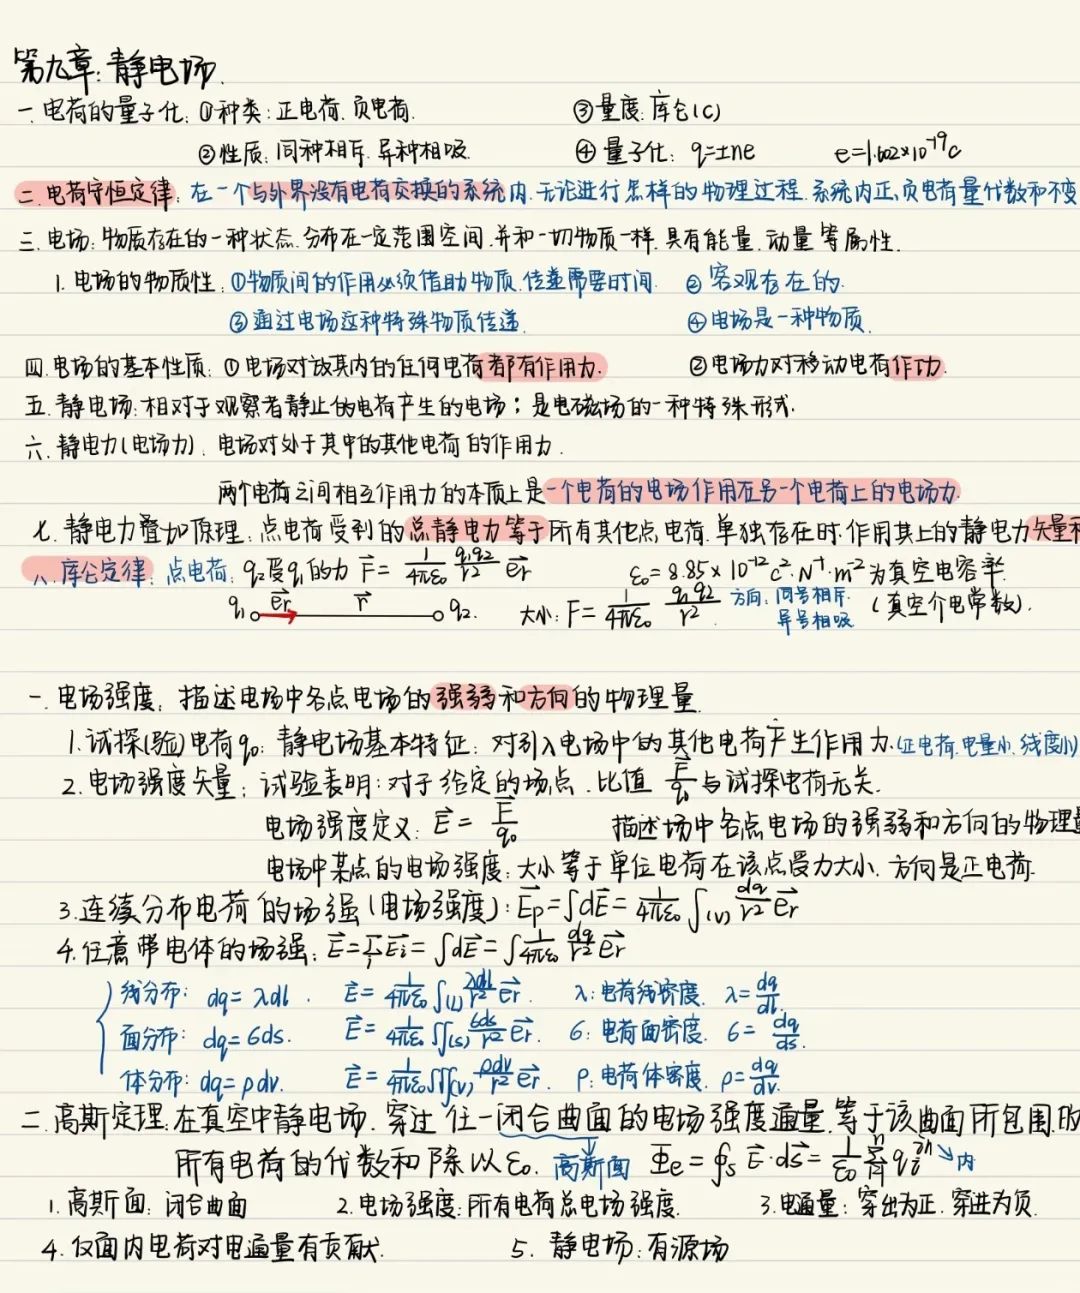 第九章:静电场.
一.电荷的量子化:①种类:正电荷.负电荷. ③量度:库仑(C)
②性质:同种相斥.异种相吸. ④量子化: q=±ne e=1.602×10⁻¹⁹C
二.电荷守恒定律:在一个与外界没有电荷交换的系统内.无论进行怎样的物理过程.系统内正、负电荷量代数和不变
三.电场:物质存在的一种状态.分布在一定范围空间.并和一切物质一样.具有能量.动量等属性.
1.电场的物质性:①物质间的作用必须借助物质.传递需要时间. ②客观存在的.
③通过电场这种特殊物质传递. ④电场是一种物质.
四.电场的基本性质:①电场对放其内的任何电荷都有作用力. ②电场力对移动电荷作功.
五.静电场:相对于观察者静止的电荷产生的电场;是电磁场的一种特殊形式.
六.静电力(电场力).电场对处于其中的其他电荷的作用力.
两个电荷之间相互作用力的本质上是一个电荷的电场作用在另一个电荷上的电场力.
七.静电力叠加原理:点电荷受到的总静电力等于所有其他点电荷.单独存在时.作用其上的静电力矢量和
八.库仑定律:点电荷:q₂受q₁的力 F⃗= 1/4πε₀ q₁q₂/r² e⃗r ε₀=8.85×10⁻¹²c²·N⁻¹·m⁻²为真空电容率
q₁ e⃗r r⃗ q₂. 大小:F= 1/4πε₀ q₁q₂/r². 方向:同号相斥. 异号相吸 (真空介电常数).
一.电场强度:描述电场中各点电场的强弱和方向的物理量.
1.试探(验)电荷q₀:静电场基本特征:对引入电场中的其他电荷产生作用力.(正电荷.电量小.线度小)
2.电场强度矢量:试验表明:对于给定的场点.比值 F⃗/q₀ 与试探电荷无关.
电场强度定义:E⃗= F⃗/q₀ 描述场中各点电场的强弱和方向的物理量
电场中某点的电场强度:大小等于单位电荷在该点受力大小.方向是正电荷.
3.连续分布电荷的场强(电场强度):E⃗p=∫dE⃗= 1/4πε₀ ∫(V) dq/r² e⃗r
4.任意带电体的场强:E⃗=∑i E⃗i=∫dE⃗=∫ 1/4πε₀ dq/r² e⃗r
线分布: dq=λdl. E⃗= 1/4πε₀ ∫(l) λdl/r² e⃗r. λ:电荷线密度. λ=dq/dl.
面分布: dq=6ds. E⃗= 1/4πε₀ ∬(s) 6ds/r² e⃗r. 6:电荷面密度. 6=dq/ds.
体分布: dq=ρdv. E⃗= 1/4πε₀ ∭(v) ρdv/r² e⃗r. ρ:电荷体密度. ρ=dq/dv.
二.高斯定理.在真空中静电场.穿过任一闭合曲面的电场强度通量.等于该曲面所包围的
所有电荷的代数和除以ε₀. 高斯面 Φe=∮s E⃗·ds⃗= 1/ε₀ ∑ⁿi=1 qi^in 内
1.高斯面:闭合曲面 2.电场强度:所有电荷总电场强度. 3.电通量:穿出为正.穿进为负.
4.仅面内电荷对电通量有贡献. 5.静电场:有源场